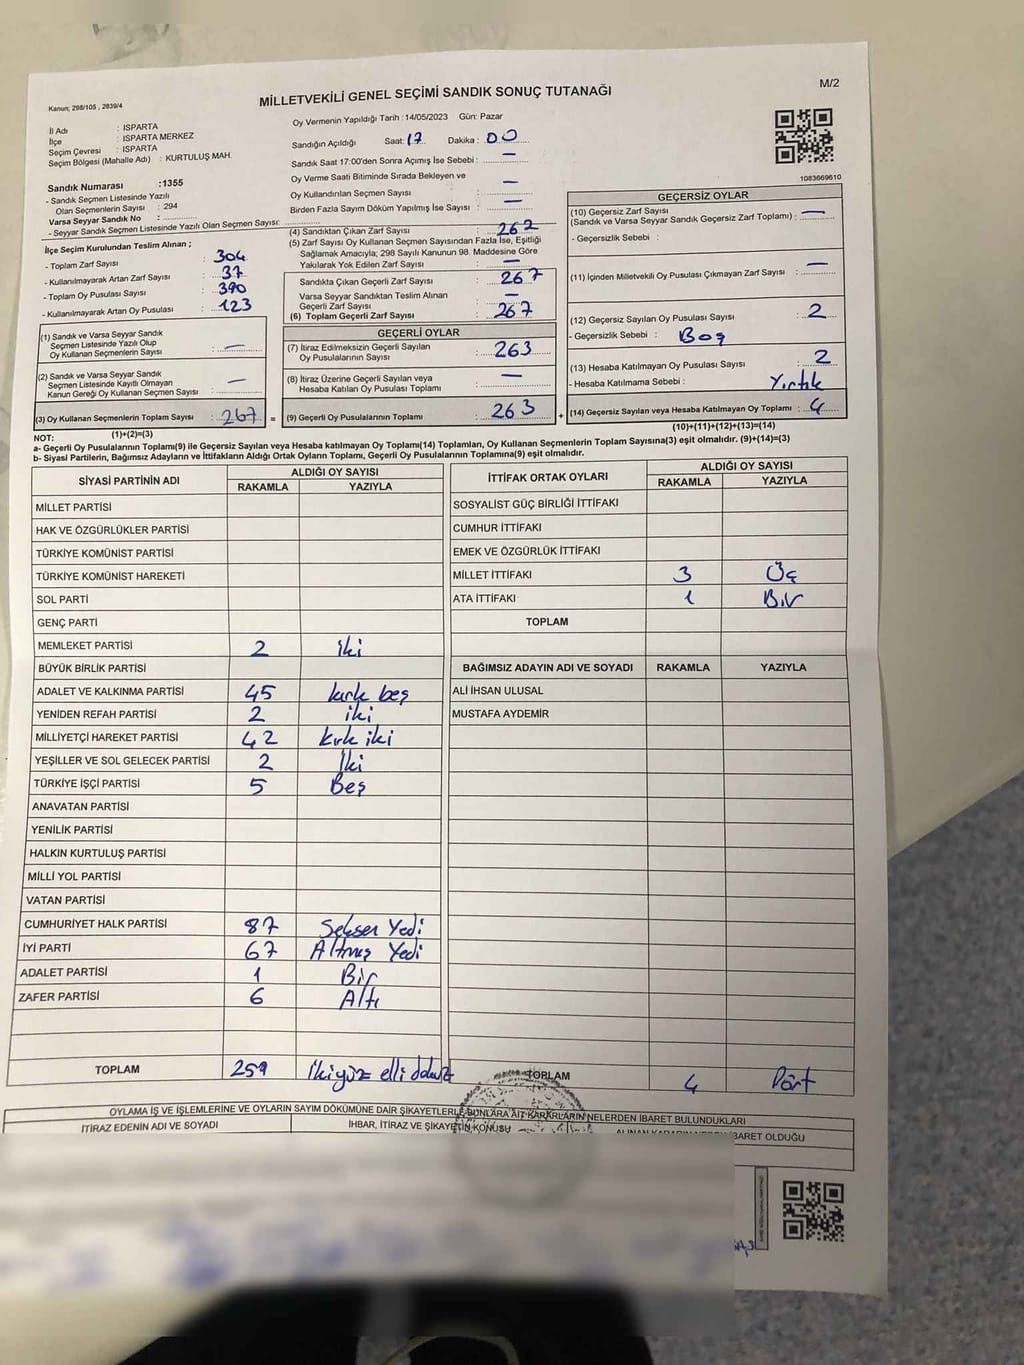 Kanun; 298/105 , 2839/4
MİLLETVEKİLİ GENEL SEÇİMİ SANDIK SONUÇ TUTANAĞI
M/2
İl Adı : ISPARTA
İlçe : ISPARTA MERKEZ
Seçim Çevresi : ISPARTA
Seçim Bölgesi (Mahalle Adı) : KURTULUŞ MAH.
Sandık Numarası :1355
- Sandık Seçmen Listesinde Yazılı
Olan Seçmenlerin Sayısı : 294
Varsa Seyyar Sandık No :
- Seyyar Sandık Seçmen Listesinde Yazılı Olan Seçmen Sayısı:
Oy Vermenin Yapıldığı Tarih :14/05/2023 Gün: Pazar
Sandığın Açıldığı Saat: 17 Dakika : 00
Sandık Saat 17:00'den Sonra Açımış İse Sebebi : —
Oy Verme Saati Bitiminde Sırada Bekleyen ve
Oy Kullandırılan Seçmen Sayısı : —
Birden Fazla Sayım Döküm Yapılmış İse Sayısı : —
1083669610
İlçe Seçim Kurulundan Teslim Alınan ;
- Toplam Zarf Sayısı : 304
- Kullanılmayarak Artan Zarf Sayısı : 37
- Toplam Oy Pusulası Sayısı : 390
- Kullanılmayarak Artan Oy Pusulası : 123
(1) Sandık ve Varsa Seyyar Sandık
Seçmen Listesinde Yazılı Olup
Oy Kullanan Seçmenlerin Sayısı : —
(2) Sandık ve Varsa Seyyar Sandık
Seçmen Listesinde Kayıtlı Olmayan
Kanun Gereği Oy Kullanan Seçmen Sayısı : —
(3) Oy Kullanan Seçmenlerin Toplam Sayısı : 267 =
(1)+(2)=(3)
(4) Sandıktan Çıkan Zarf Sayısı : 262
(5) Zarf Sayısı Oy Kullanan Seçmen Sayısından Fazla İse, Eşitliği
Sağlamak Amacıyla; 298 Sayılı Kanunun 98. Maddesine Göre
Yakılarak Yok Edilen Zarf Sayısı : —
Sandıkta Çıkan Geçerli Zarf Sayısı : 267
Varsa Seyyar Sandıktan Teslim Alınan
Geçerli Zarf Sayısı : —
(6) Toplam Geçerli Zarf Sayısı : 267
GEÇERLİ OYLAR
(7) İtiraz Edilmeksizin Geçerli Sayılan
Oy Pusulalarının Sayısı : 263
(8) İtiraz Üzerine Geçerli Sayılan veya
Hesaba Katılan Oy Pusulası Toplamı : —
(9) Geçerli Oy Pusulalarının Toplamı : 263 +
GEÇERSİZ OYLAR
(10) Geçersiz Zarf Sayısı
(Sandık ve Varsa Seyyar Sandık Geçersiz Zarf Toplamı) : —
- Geçersizlik Sebebi :
(11) İçinden Milletvekili Oy Pusulası Çıkmayan Zarf Sayısı : —
(12) Geçersiz Sayılan Oy Pusulası Sayısı : 2
- Geçersizlik Sebebi : Boş
(13) Hesaba Katılmayan Oy Pusulası Sayısı : 2
- Hesaba Katılmama Sebebi : Yırtık
(14) Geçersiz Sayılan veya Hesaba Katılmayan Oy Toplamı : 4
(10)+(11)+(12)+(13)=(14)
NOT:
a- Geçerli Oy Pusulalarının Toplamı(9) ile Geçersiz Sayılan veya Hesaba katılmayan Oy Toplamı(14) Toplamları, Oy Kullanan Seçmenlerin Toplam Sayısına(3) eşit olmalıdır. (9)+(14)=(3)
b- Siyasi Partilerin, Bağımsız Adayların ve İttifakların Aldığı Ortak Oyların Toplamı, Geçerli Oy Pusulalarının Toplamına(9) eşit olmalıdır.
SİYASİ PARTİNİN ADI ALDIĞI OY SAYISI
RAKAMLA YAZIYLA
MİLLET PARTİSİ
HAK VE ÖZGÜRLÜKLER PARTİSİ
TÜRKİYE KOMÜNİST PARTİSİ
TÜRKİYE KOMÜNİST HAREKETİ
SOL PARTİ
GENÇ PARTİ
MEMLEKET PARTİSİ 2 iki
BÜYÜK BİRLİK PARTİSİ
ADALET VE KALKINMA PARTİSİ 45 kırk beş
YENİDEN REFAH PARTİSİ 2 iki
MİLLİYETÇİ HAREKET PARTİSİ 42 kırk iki
YEŞİLLER VE SOL GELECEK PARTİSİ 2 İki
TÜRKİYE İŞÇİ PARTİSİ 5 Beş
ANAVATAN PARTİSİ
YENİLİK PARTİSİ
HALKIN KURTULUŞ PARTİSİ
MİLLİ YOL PARTİSİ
VATAN PARTİSİ
CUMHURİYET HALK PARTİSİ 87 Seksen Yedi
İYİ PARTİ 67 Altmış Yedi
ADALET PARTİSİ 1 Bir
ZAFER PARTİSİ 6 Altı
TOPLAM 259 İkiyüz elli dokuz
İTTİFAK ORTAK OYLARI ALDIĞI OY SAYISI
RAKAMLA YAZIYLA
SOSYALİST GÜÇ BİRLİĞİ İTTİFAKI
CUMHUR İTTİFAKI
EMEK VE ÖZGÜRLÜK İTTİFAKI
MİLLET İTTİFAKI 3 Üç
ATA İTTİFAKI 1 Bir
TOPLAM
BAĞIMSIZ ADAYIN ADI VE SOYADI RAKAMLA YAZIYLA
ALİ İHSAN ULUSAL
MUSTAFA AYDEMİR
TOPLAM 4 Dört
OYLAMA İŞ VE İŞLEMLERİNE VE OYLARIN SAYIM DÖKÜMÜNE DAİR ŞİKAYETLERLE BUNLARA AİT KARARLARIN NELERDEN İBARET BULUNDUKLARI
İTİRAZ EDENİN ADI VE SOYADI İHBAR, İTİRAZ VE ŞİKAYETİN KONUSU
İBARET OLDUĞU